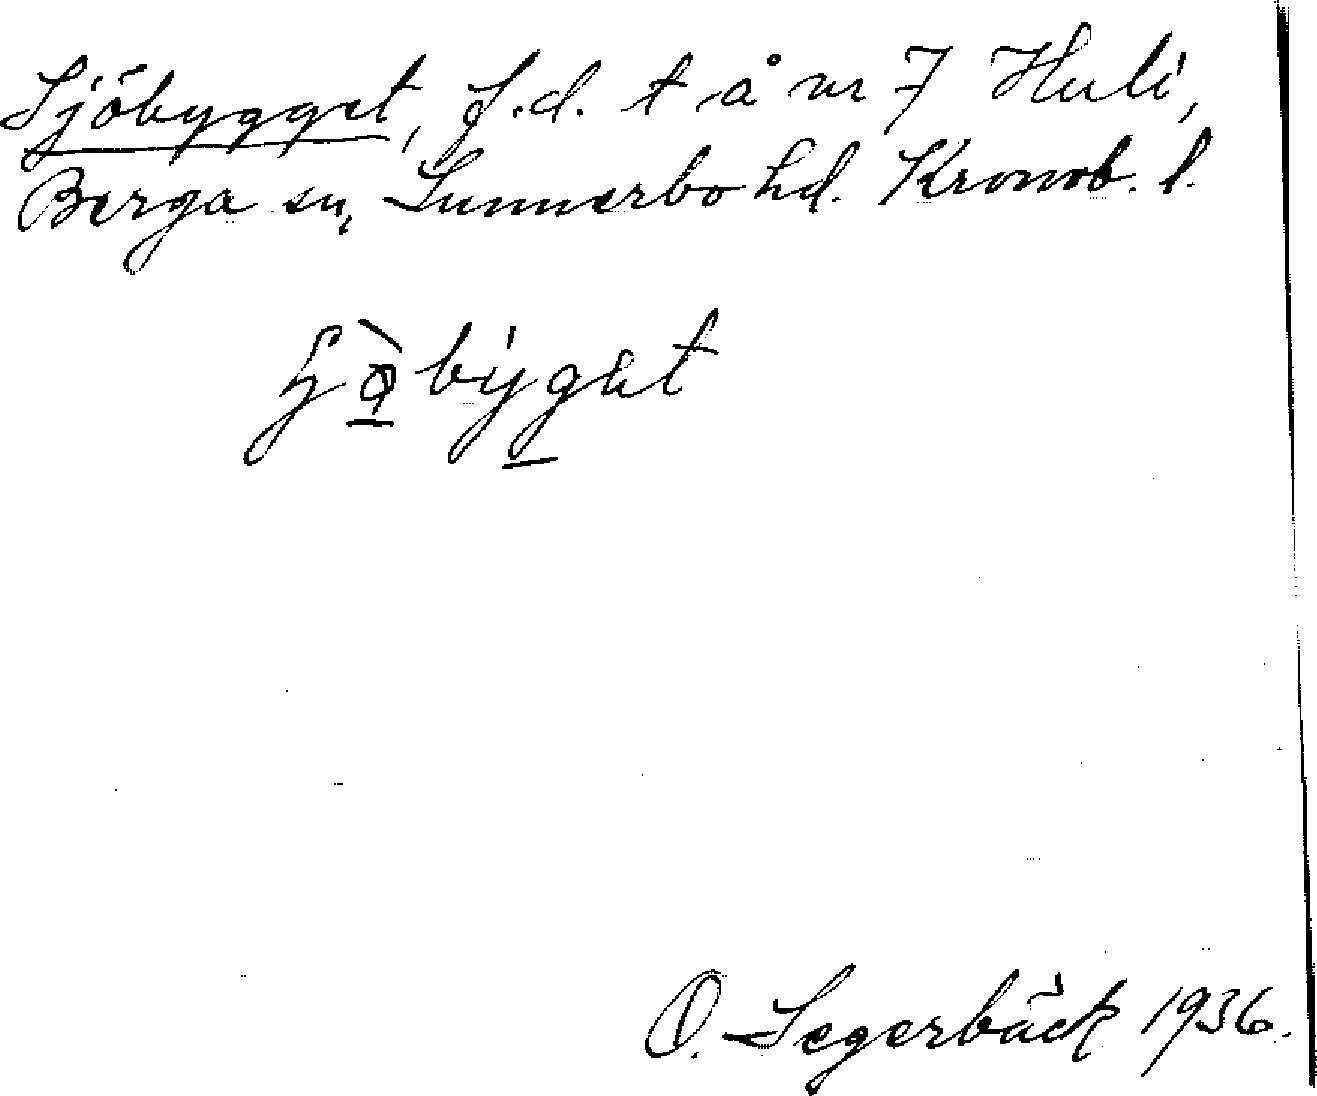 Sjöbygget, f.d. t å nr 7 Huli,
Berga sn, Sunnerbo hd. Kronob. l.
O. Segerbäck 1936.